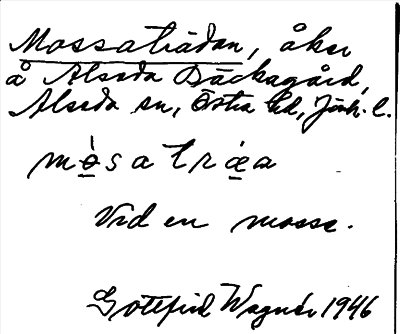 Mossaträdan, åker
å Alseda Bäckagård,
Alseda sn, Östra hd, Jönk. l.
mòsatràa
Vid en mosse.
Gottfrid Wagnér 1946